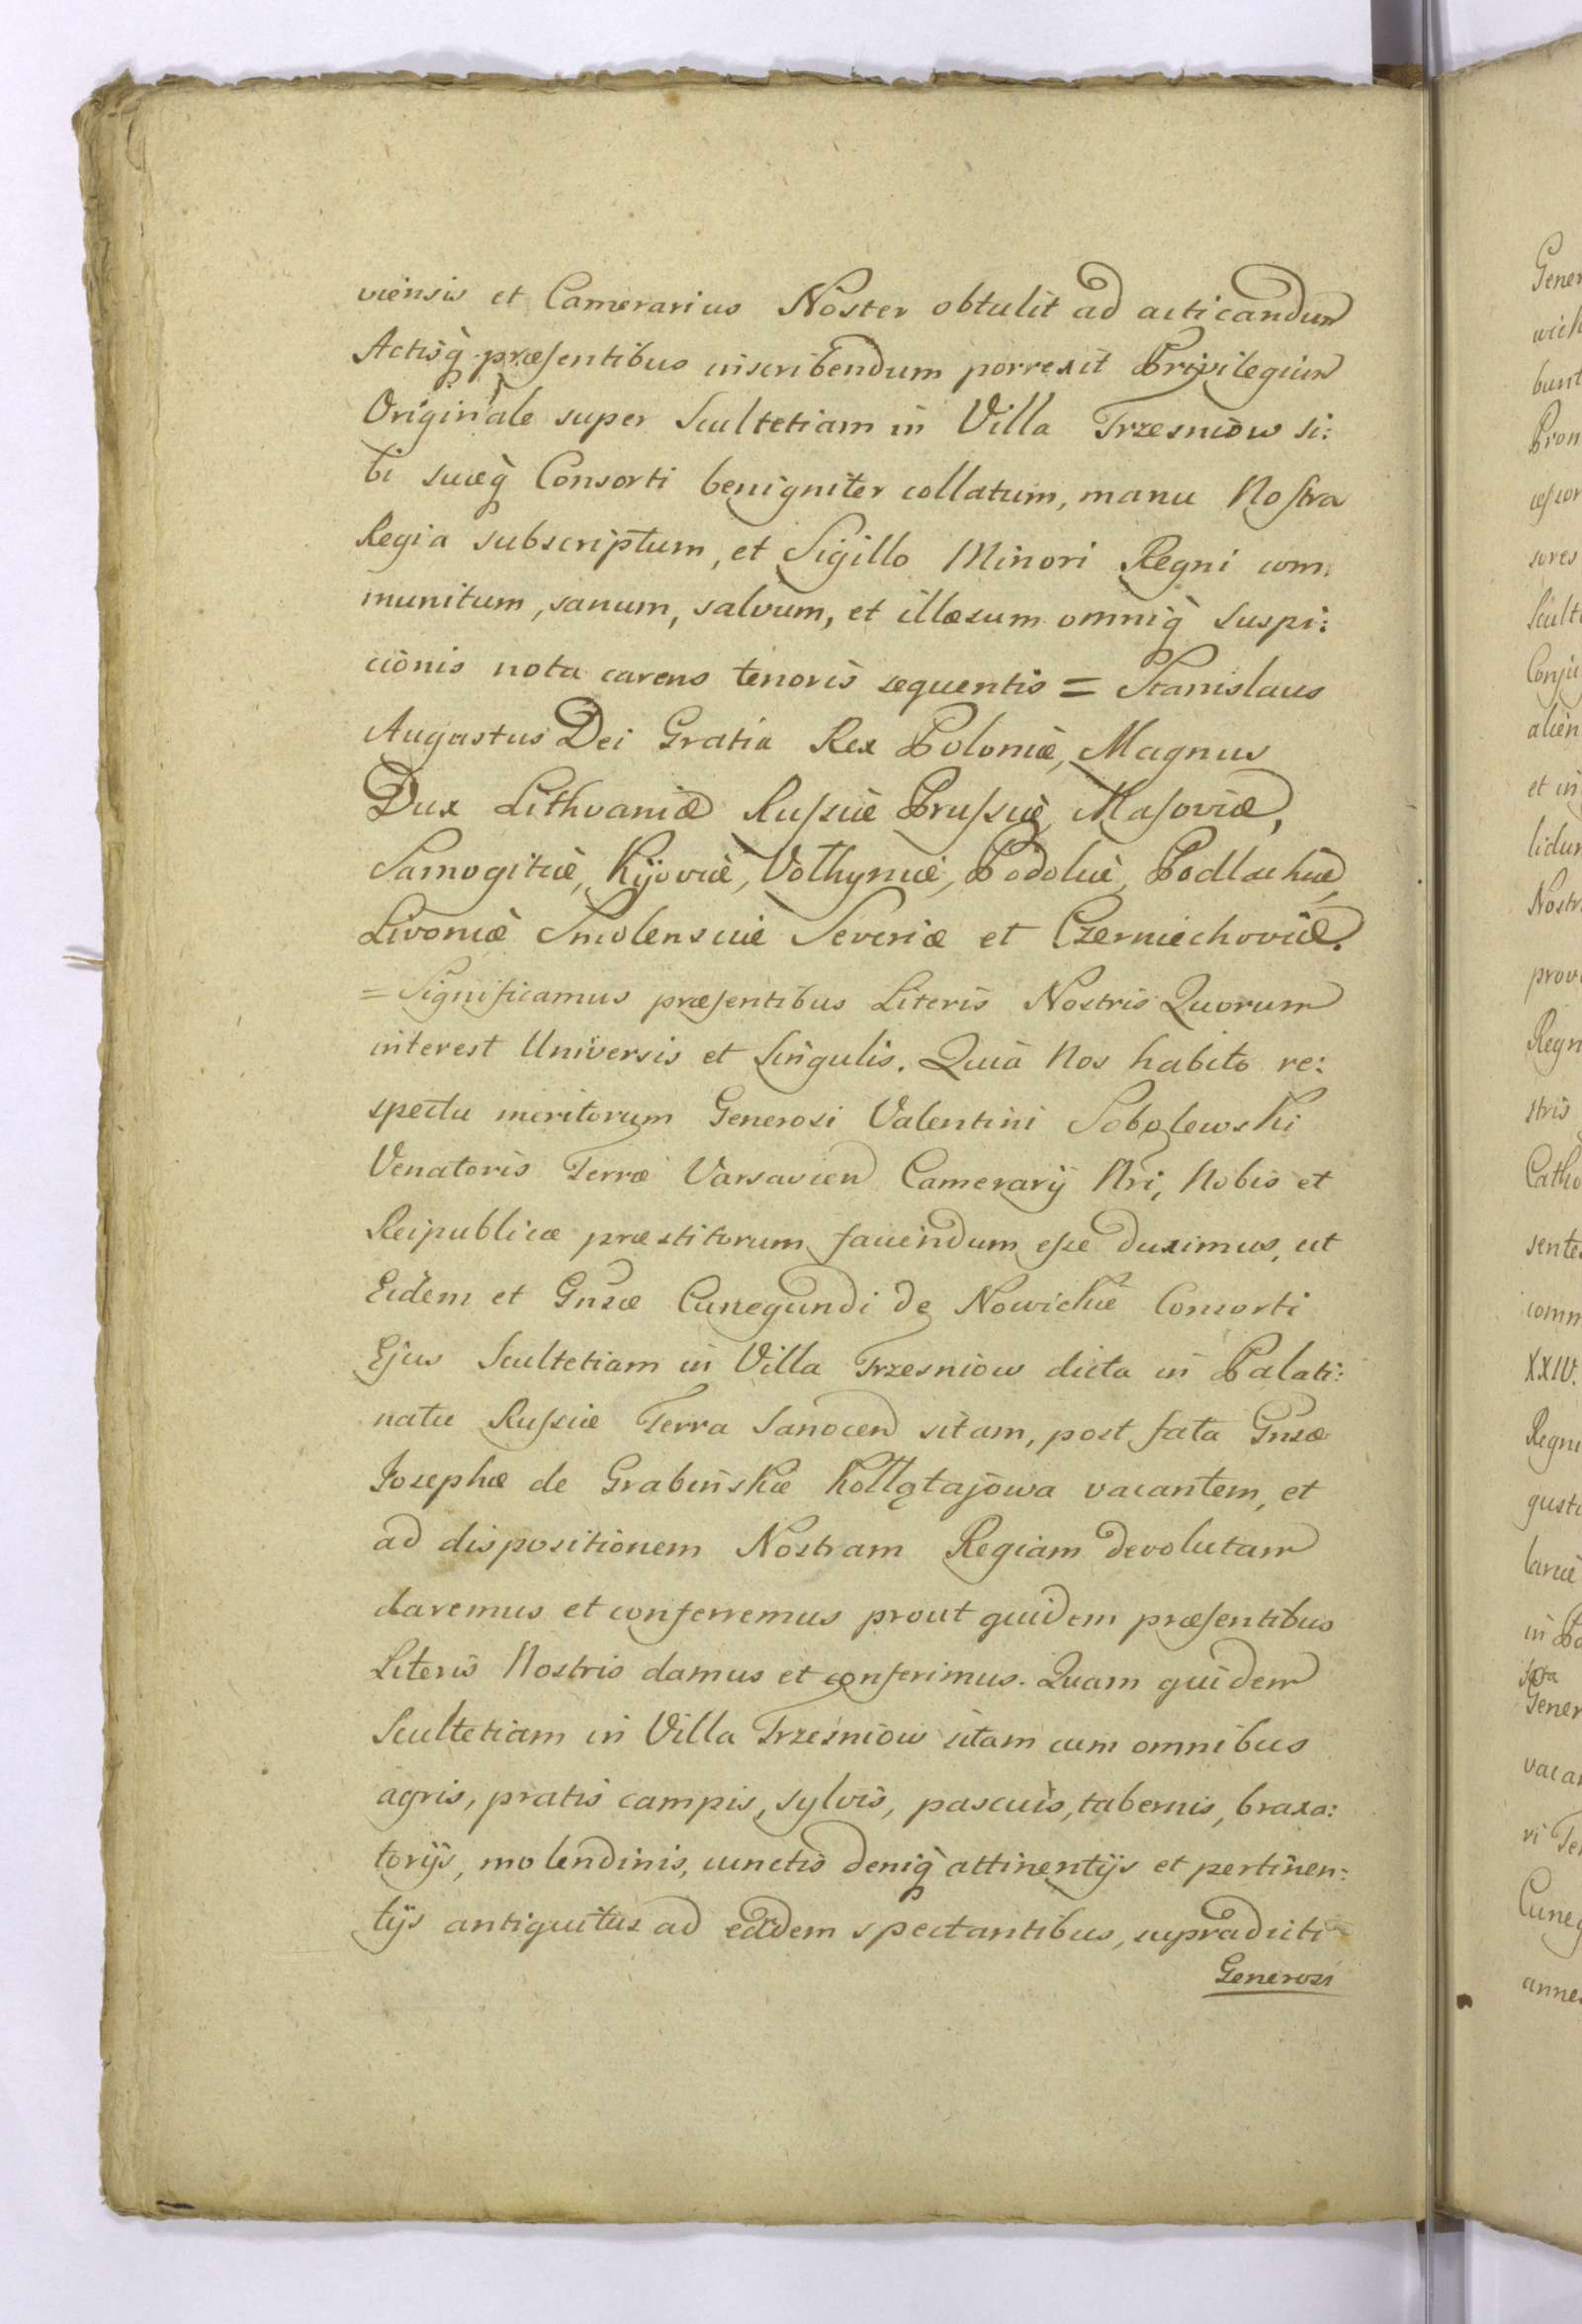 viensis et Camerarius Noster obtulit ad acticandum
Actisq̀ præsentibus inscribendum porrexit Privilegium
Originale super Scultetiam in Villa Trzesniow si:
bi suæq̀ Consorti benigniter collatum, manu Nostra
Regia subscriptum, et Sigillo Minori Regni com:
munitum, sanum, salvum, et illæsum omniq̀ suspi:
cionis nota carens tenoris sequentis = Stanislaus
Augustus Dei Gratia Rex Poloniæ, Magnus
Dux Lithvaniæ Russiæ Prussiæ, Masoviæ,
Samogitiæ, Kijoviæ, Volhyniæ, Podoliæ, Podlachiæ,
Livoniæ Smolensciæ Severiæ et Czerniechoviæ.
= Significamus præsentibus Literis Nostris Quorum
interest Universis et Singulis. Quià Nos habito re:
spectu meritorum Generosi Valentini Sobolewski
Venatoris Terræ Varsavien Camerarij Nri, Nobis et
Reipublicæ præstitorum favendum esse duximus, ut
Eidem et Gnsæ Cunegundi de Nowickie Consorti
Ejus Scultetiam in Villa Trzesniow dicta in Palati:
natu Russiæ Terra Sanocen sitam, post fata Gnsæ
Josephæ de Grabińskie Kołłątajowa vacantem, et
ad dispositionem Nostram Regiam devolutam
daremus et conferremus prout quidem præsentibus
Literis Nostris damus et conferimus. Quam quidem
Scultetiam in Villa Trzesniow sitam cum omnibus
agris, pratis campis, sylvis, pascuis, tabernis, braxa:
torijs, molendinis, cunctis deniq̀ attinentijs et pertinen:
tijs antiquitus ad eandem spectantibus, supradicti
Generosi